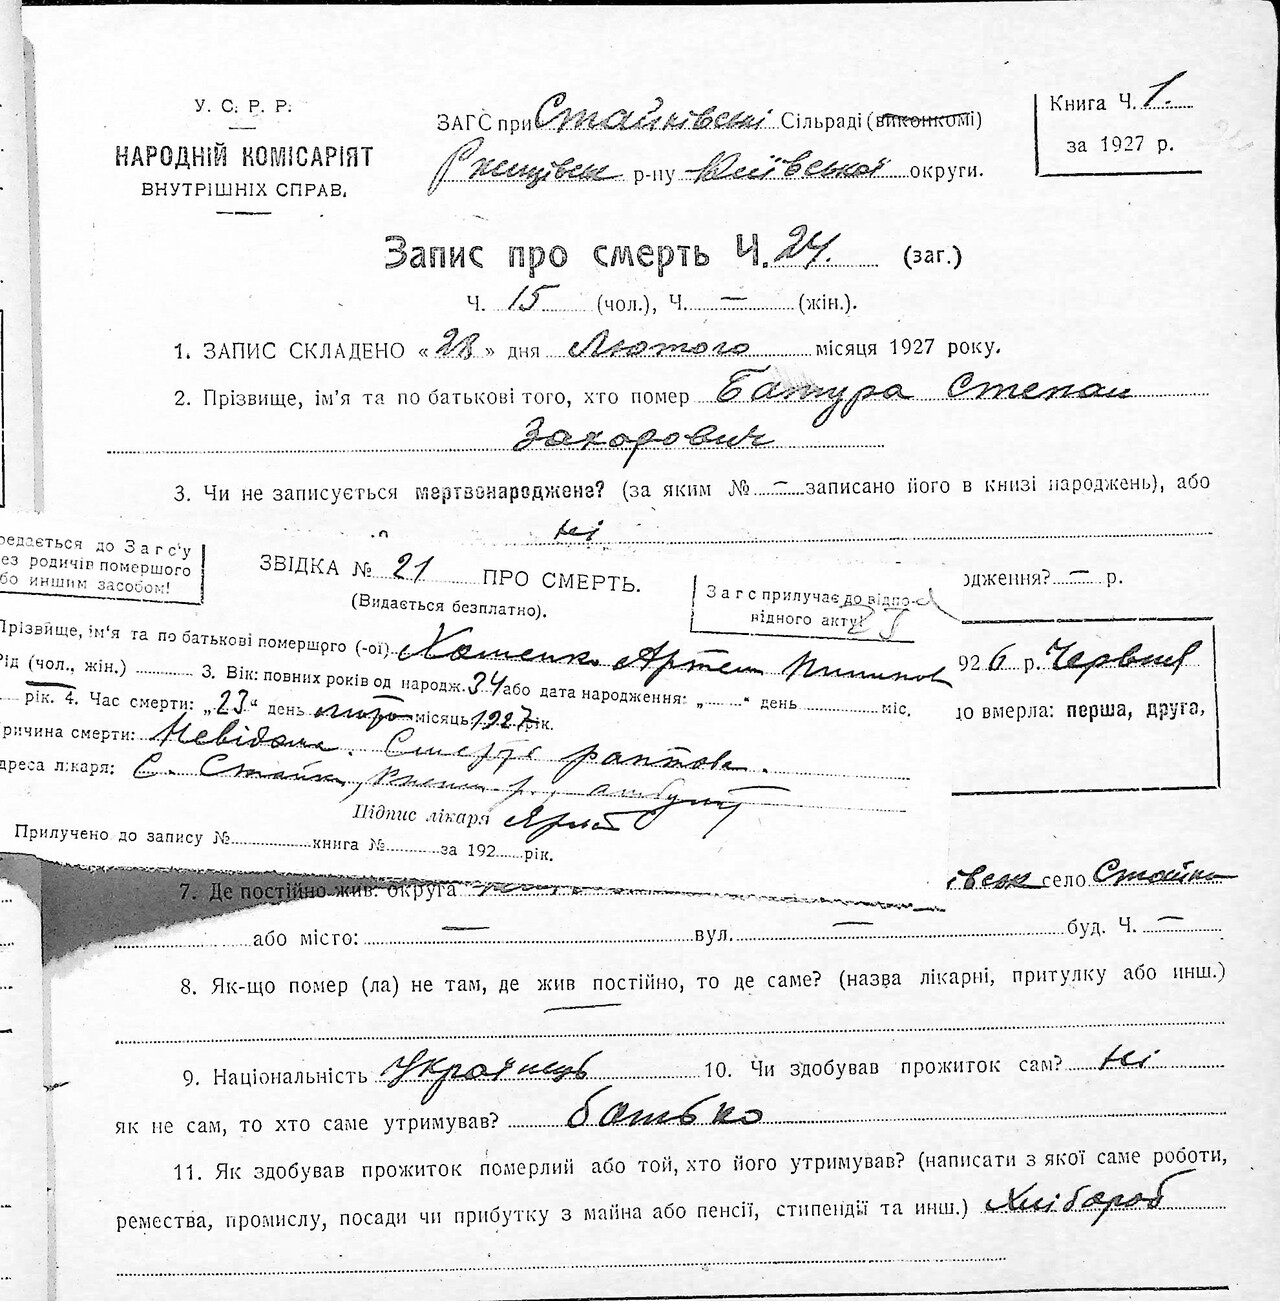 У. С. Р. Р.
НАРОДНІЙ КОМІСАРІЯТ
ВНУТРІШНІХ СПРАВ.
ЗАГС при Стайківській Сільраді (виконкомі)
Ржищівськ р-ну Київської округи.
Книга Ч. 1.
за 1927 р.
Запис про смерть Ч. 24. (заг.)
Ч. 15 (чол.), Ч. — (жін.).
1. ЗАПИС СКЛАДЕНО «28» дня Лютого місяця 1927 року.
2. Прізвище, ім'я та по батькові того, хто помер Батура Степан
Захорович
3. Чи не записується мертвонароджене? (за яким № — записано його в книзі народжень), або
ні
редається до Загс'у
ез родичів помершого
бо иншим засобом!
ЗВІДКА № 21 ПРО СМЕРТЬ.
(Видається безплатно).
Загс прилучає до відпо-
відного акту!
одження? — р.
Прізвище, ім'я та по батькові помершого (-ої) Артем
926 р. Червня
Рід (чол., жін.) 3. Вік: повних років од народж. 34 або дата народження: „ “ день міс.
рік. 4. Час смерти: „23“ день лютого місяць 1927 рік.
до вмерла: перша, друга,
ричина смерти: Невідома. Смерть раптова.
дреса лікаря: С. Стайки,
Підпис лікаря
Прилучено до запису № книга № за 192 рік.
7. Де постійно жив: округа
івськ село Стайки
або місто: — вул. — буд. Ч. —
8. Як-що помер (ла) не там, де жив постійно, то де саме? (назва лікарні, притулку або инш.)
—
9. Національність Українець 10. Чи здобував прожиток сам? ні
як не сам, то хто саме утримував? батько
11. Як здобував прожиток померлий або той, хто його утримував? (написати з якої саме роботи,
ремества, промислу, посади чи прибутку з майна або пенсії, стипендії та инш.) Хлібороб